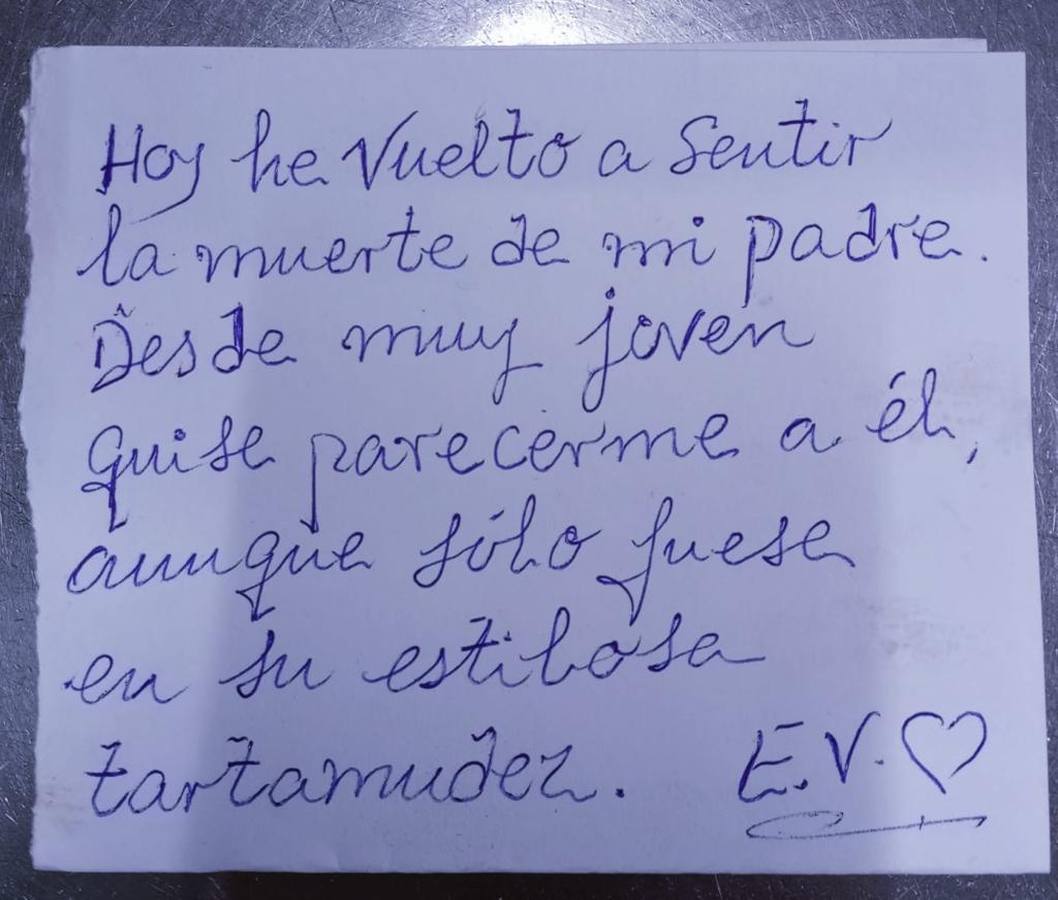 Hoy he Vuelto a Sentir
la muerte de mi padre.
Desde muy joven
quise parecerme a él,
aunque sólo fuese
en su estilosa
tartamudez. E.V.♡